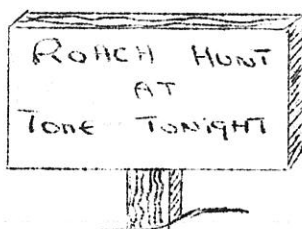 ROACH HUNT
AT
TONE TONIGHT